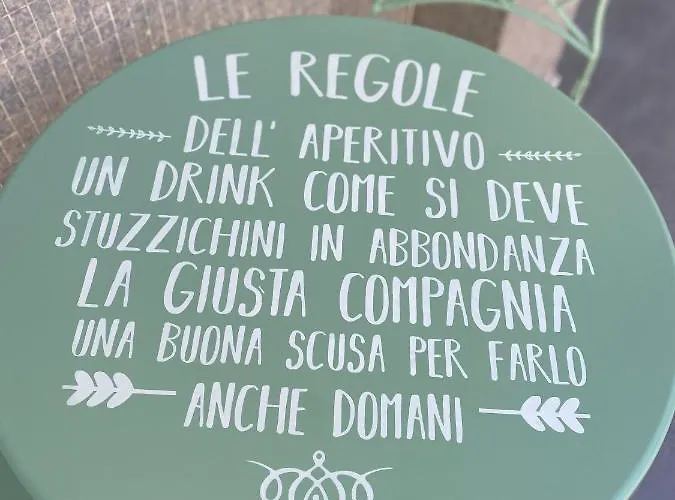 LE REGOLE
DELL' APERITIVO
UN DRINK COME SI DEVE
STUZZICHINI IN ABBONDANZA
LA GIUSTA COMPAGNIA
UNA BUONA SCUSA PER FARLO
ANCHE DOMANI